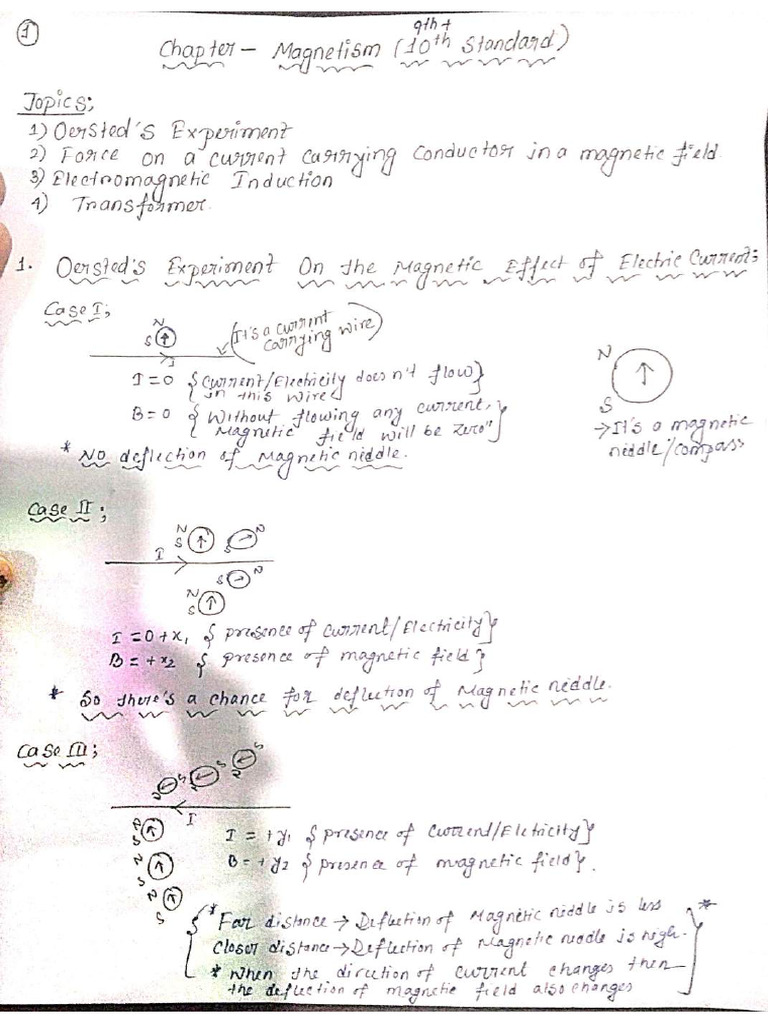 1
9th +
Chapter - Magnetism (10th Standard)
Topics;
1) Oersted's Experiment
2) Force on a current carrying conductor in a magnetic field.
3) Electromagnetic Induction
4) Transformer.
1. Oersted's Experiment On the Magnetic Effect of Electric Current:
Case I;
N
S
(It's a current
carrying wire)
I
I = 0 {Current/Electricity doesn't flow}
in this wire
B = 0 {Without flowing any current,
Magnetic field will be zero"}
* No deflection of Magnetic niddle.
N
S
→It's a magnetic
niddle/compass
Case II;
N
S
S N
I
S N
N
S
I = 0 + x1 {presence of current/Electricity}
B = + x2 {presence of magnetic field}
* So there's a chance for deflection of Magnetic niddle.
Case III;
N S N S N S
I
N
S
N
S
N
S
I = + y1 {presence of Current/Eletricity}
B = + y2 {presence of magnetic field}.
* Far distance → Deflection of Magnetic niddle is less *
Closer distance → Deflection of Magnetic niddle is high.
* When the direction of current changes then
the deflection of magnetic field also changes